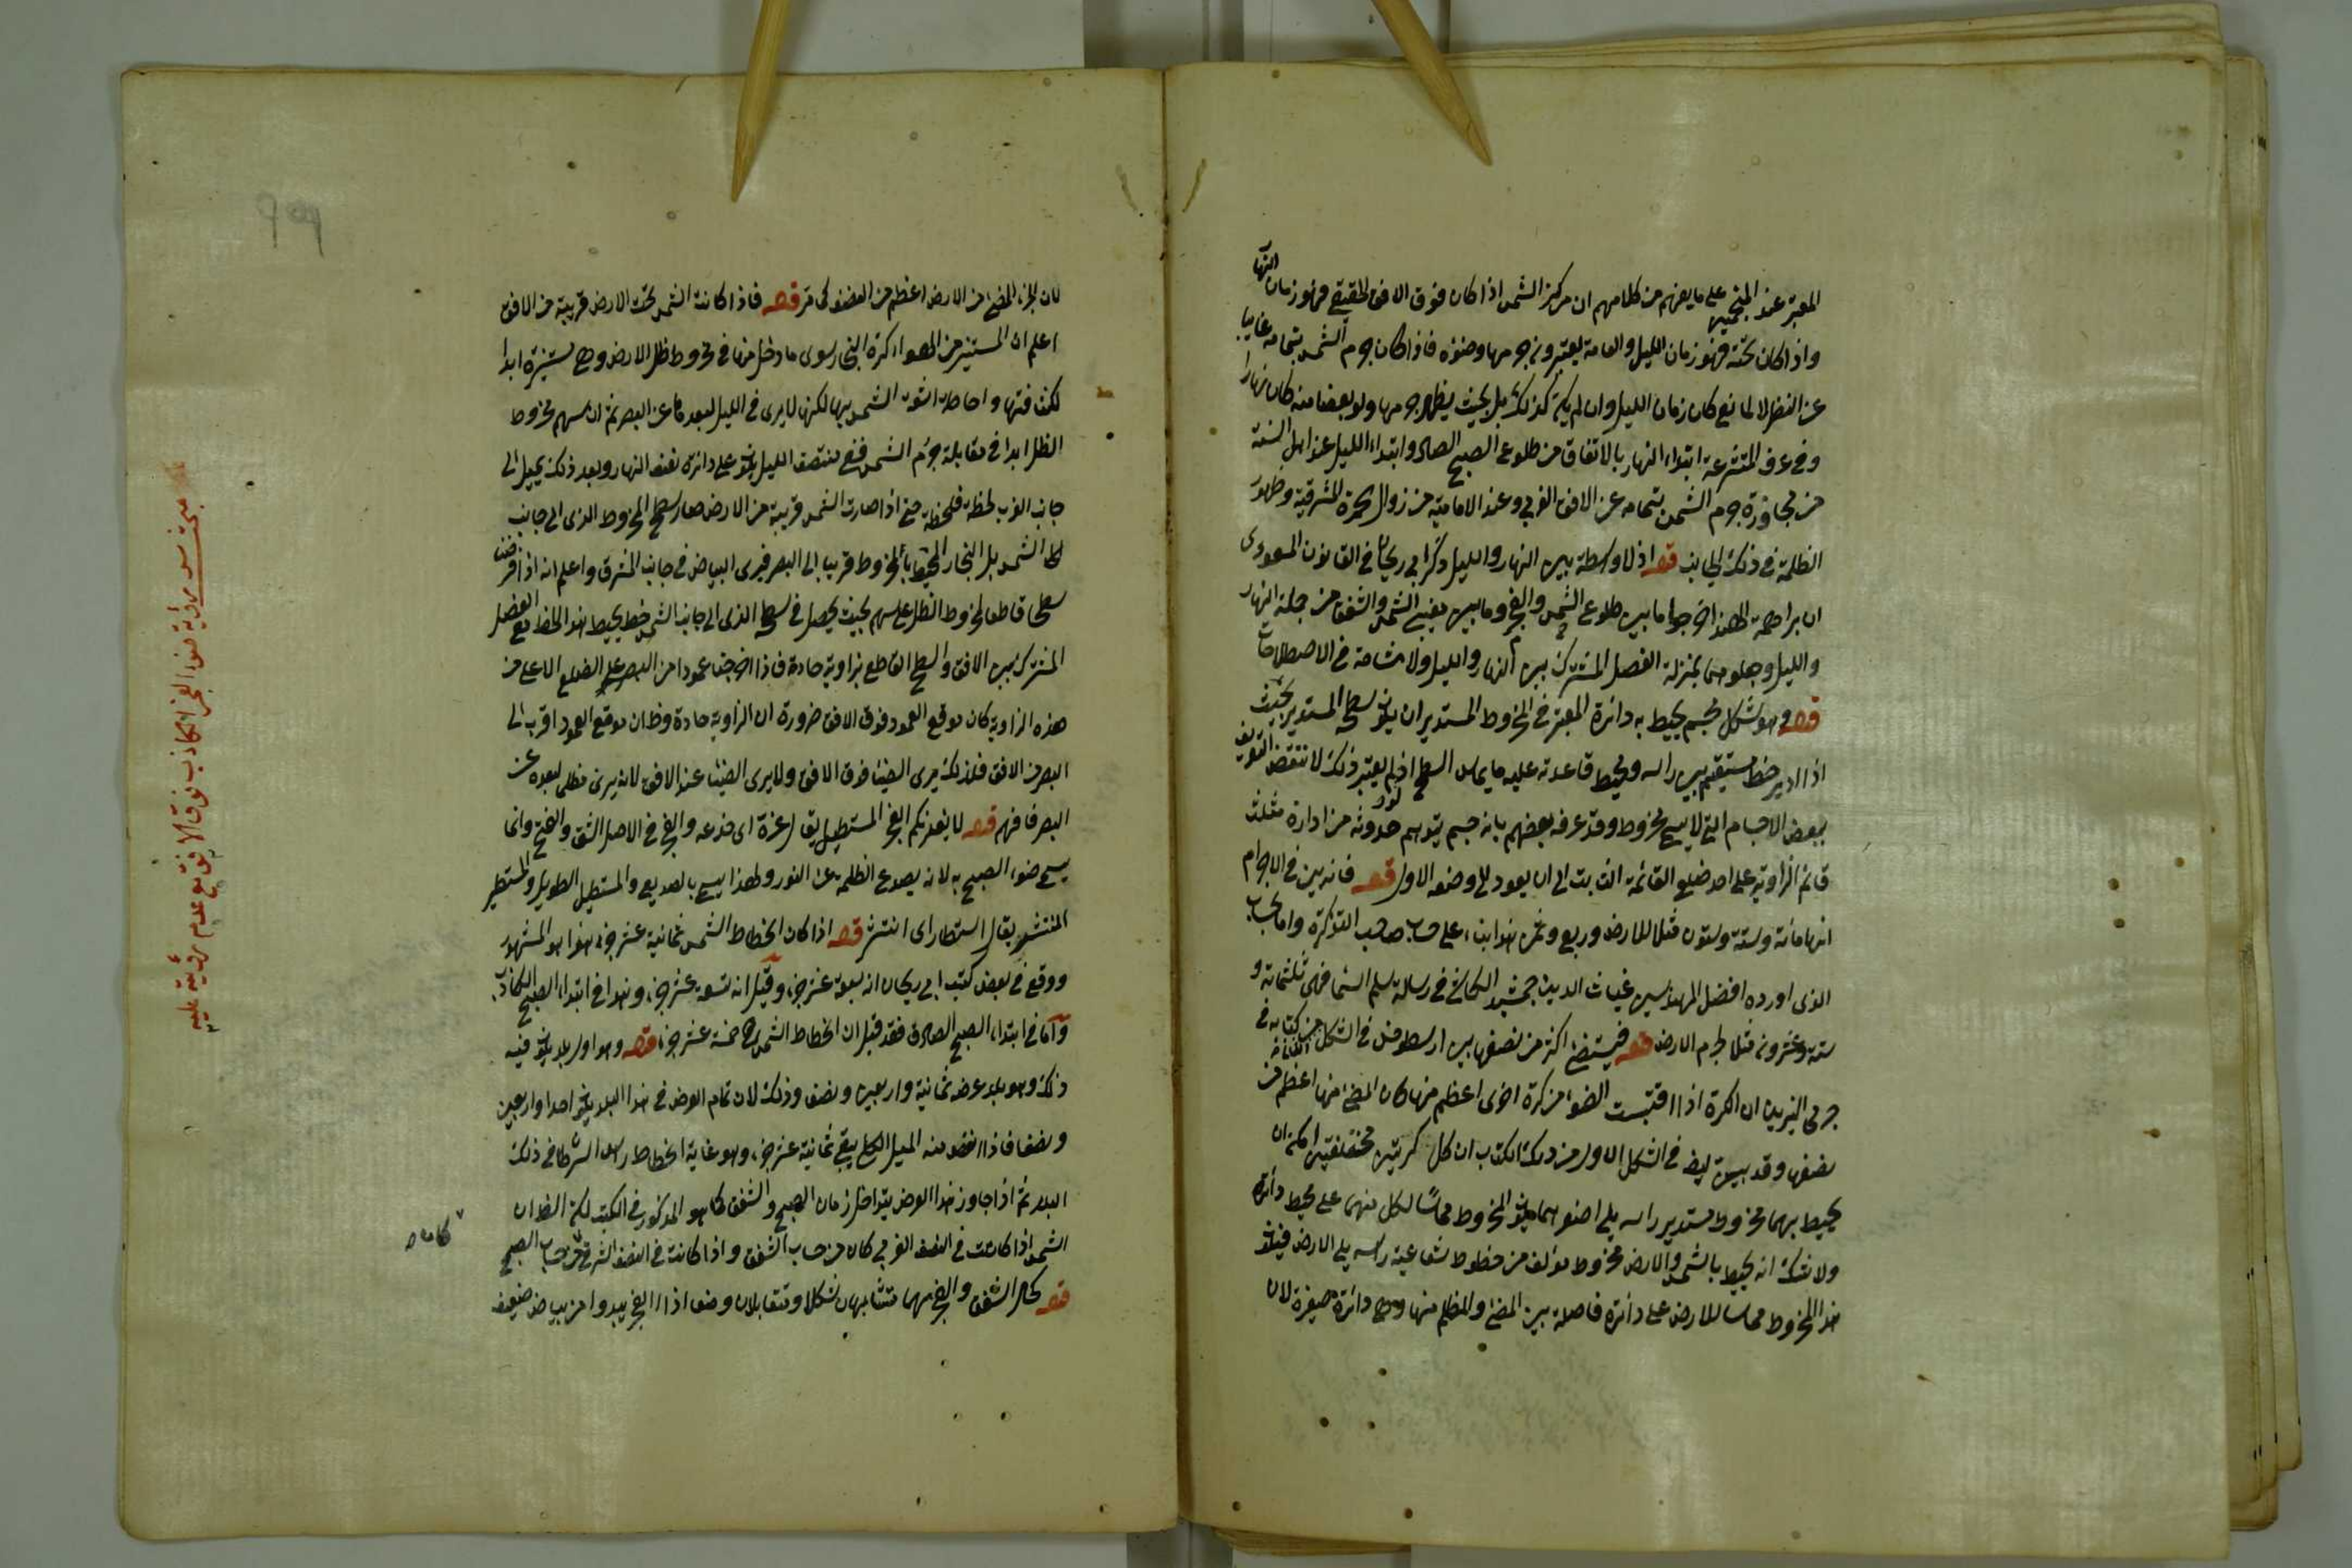 المعتبر عند المنجمين على ما يفهم من كلامهم ان مركز الشمس اذا كان فوق الافق الحقيقى فهو زمان النهار
واذا كان تحته فهو زمان الليل والعامة يعتبرون جرمها وضوءه فاذا كان جرم الشمس بتمامه غايبا
عن النظر لا لمانع كان زمان الليل وان لم يكن كذلك بل بحيث يظهر جرمها ولو بعضا منه كان نهارا
وفى عرف المتشرعة ابتداء النهار بالاتفاق من طلوع الصبح الصادق وابتداء الليل عند اهل السنة
من مجاوزة جرم الشمس بتمامه عن الافق الغربى وعند الامامية من زوال الحمرة المشرقية وظهور
الظلمة فى ذلك الجانب قوله اذ لا واسطة بين النهار والليل ذكر ابى ريحان فى القانون المسعودى
ان براهمة الهند اخرجوا ما بين طلوع الشمس والفجر وما بين مغيب الشمس والشفق من جملة النهار
والليل وجعلوهما بمنزلة الفصل المشترك بين النهار والليل ولا مشاحة فى الاصطلاحات
قوله وهو شكل مجسم يحيط به دائرة المعتبر فى المخروط المستدير ان يكون سطحه المستدير بحيث
اذا ادير خط مستقيم بين راسه ومحيط قاعدته عليه ماس السطح اذ لو لم يعتبر ذلك لانتقض التعريف
ببعض الاجسام التى لا يسمى مخروط وقد عرفه بعضهم بانه جسم يتوهم حدوثه من ادارة مثلث
قائم الزاوية على احد ضلعى القائمة الثابت الى ان يعود الى وضعه الاول قوله فانه بين فى الاجرام
انها مائة وستة وستون مثلا للارض وربع وثمن هذا بناء على حساب صاحب التذكرة واما بحساب
الذى اورده افضل المهندسين غياث الدين جمشيد الكاشى فى رسالة سلم السماء فهى ثلثمائة و
ستة وعشرون مثلا لجرم الارض قوله فيستضئ اكثر من نصفها بين ارسطرخس فى الشكل الثانى من كتابه فى
جرمى النيرين ان الكرة اذا اقتبست الضوء من كرة اخرى اعظم منها كان المضئ منها اعظم من
نصفها وقد بين ايضا فى الشكل الاول من ذلك الكتاب ان كل كرتين مختلفتين امكن ان
يحيط بهما مخروط مستدير راسه يلى اصغرهما ويكون المخروط مماسًا لكل منهما على محيط دائرة
ولا شك انه يحيط بالشمس والارض مخروط مؤلف من خطوط شعاعية راسه يلى الارض فيكون
هذا المخروط مماسا للارض على دائرة فاصلة بين المضئ والمظلم منها وهى دائرة صغيرة لان
لان الجزء المضئ من الارض اعظم من النصف كما مر قوله فاذا كانت الشمس تحت الارض قريبة من الافق
اعلم ان المستنير من الهواء كرة البخار سوى ما دخل منها فى مخروط ظل الارض وهى مستنيرة ابدا
لكثافتها واحاطة اشعة الشمس بها لكنها لا يرى فى الليل لبعدها عن البصر ثم ان سهم مخروط
الظل ابدا فى مقابلة جرم الشمس ففى منتصف الليل يكون على دائرة نصف النهار وبعد ذلك يميل الى
جانب الغرب لحظة فلحظة حتى اذا صارت الشمس قريبة من الارض صار سطح المخروط الذى الى جانب
الشمس بل البخار المحيط بالمخروط قريبا الى البصر فيرى البياض فى جانب المشرق واعلم انه اذا فرضنا
سطحا قاطعا لمخروط الظل على سهمه بحيث يحصل فى سطحه الذى الى جانب الشمس خط يحيط هذا الخط مع الفصل
المشترك بين الافق والسطح القاطع بزاوية حادة فاذا اخرجنا عمودا من البصر على الضلع الاعلى من
هذه الزاوية كان موقع العمود فوق الافق ضرورة ان الزاوية حادة وظ ان موقع العمود اقرب الى
البصر من الافق فلذلك يرى الضياء فوق الافق ولا يرى الضياء عند الافق لانه يرى مظلم لبعده عن
البصر فافهم قوله لا يغرنكم الفجر المستطيل يقال غره اى خدعه والفجر فى الاصل الشق والفتح وانما
يسمى ضوء الصبح به لانه يصدع الظلمة عن النور ولهذا يسمى بالصديع والمستطيل الطويل والمستطير
المنتشر يقال استطار اى انتشر قوله اذا كان انحطاط الشمس ثمانية عشر جزء هذا هو المشهور
ووقع فى بعض كتب ابى ريحان انه سبعة عشر جزء وقيل انه تسعة عشر جزء وهذا فى ابتداء الصبح الكاذب
واما فى ابتداء الصبح الصادق فقد قيل ان انحطاط الشمس ح خمسة عشر جزء قوله وهو اول بلد يكون فيه
ذلك وهو بلد عرضه ثمانية واربعين ونصف وذلك لان تمام العرض فى هذا البلد يكون احدا واربعين
ونصفا فاذا نقص منه الميل الكلى يبقى ثمانية عشر جزء وهو غاية انحطاط راس السرطان فى ذلك
البلد ثم اذا جاوز هذا العرض يتداخل زمان الصبح والشفق كما هو المذكور فى الكتب لكن الظ ان
الشمس اذا كانت فى النصف الغربى كان من حساب الشفق واذا كانت فى النصف الشرقى فمن حساب الصبح
قوله كحال الشفق والفجر فهما متشابهان شكلا ومتقابلان وضعا اذ الفجر يبدو من بياض ضعيف
مبحث سبب رؤية ضوء الفجر الكاذب فوق الافق مع عدم رؤية عليه